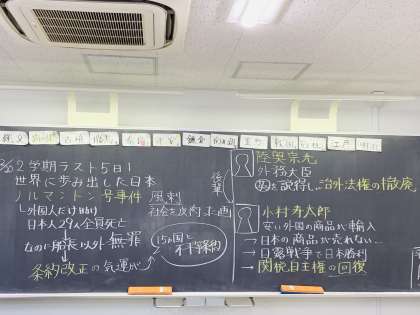 縄文
弥生
古墳
飛鳥
奈良
平安
鎌倉
室町
戦国
江戸
明治
2学期ラスト5日!
世界に歩み出した日本
ノルマントン号事件
風刺
社会を皮肉った画
└外国人だけ助け
日本人全員死亡
なのに船長以外無罪
条約改正の気運が
15か国と不平等条約
後輩
陸奥宗光
外務大臣
英を説得し治外法権の撤廃
小村寿太郎
安い外国の商品が輸入
→日本の商品が売れない…
→日露戦争で日本勝利
→関税自主権の回復